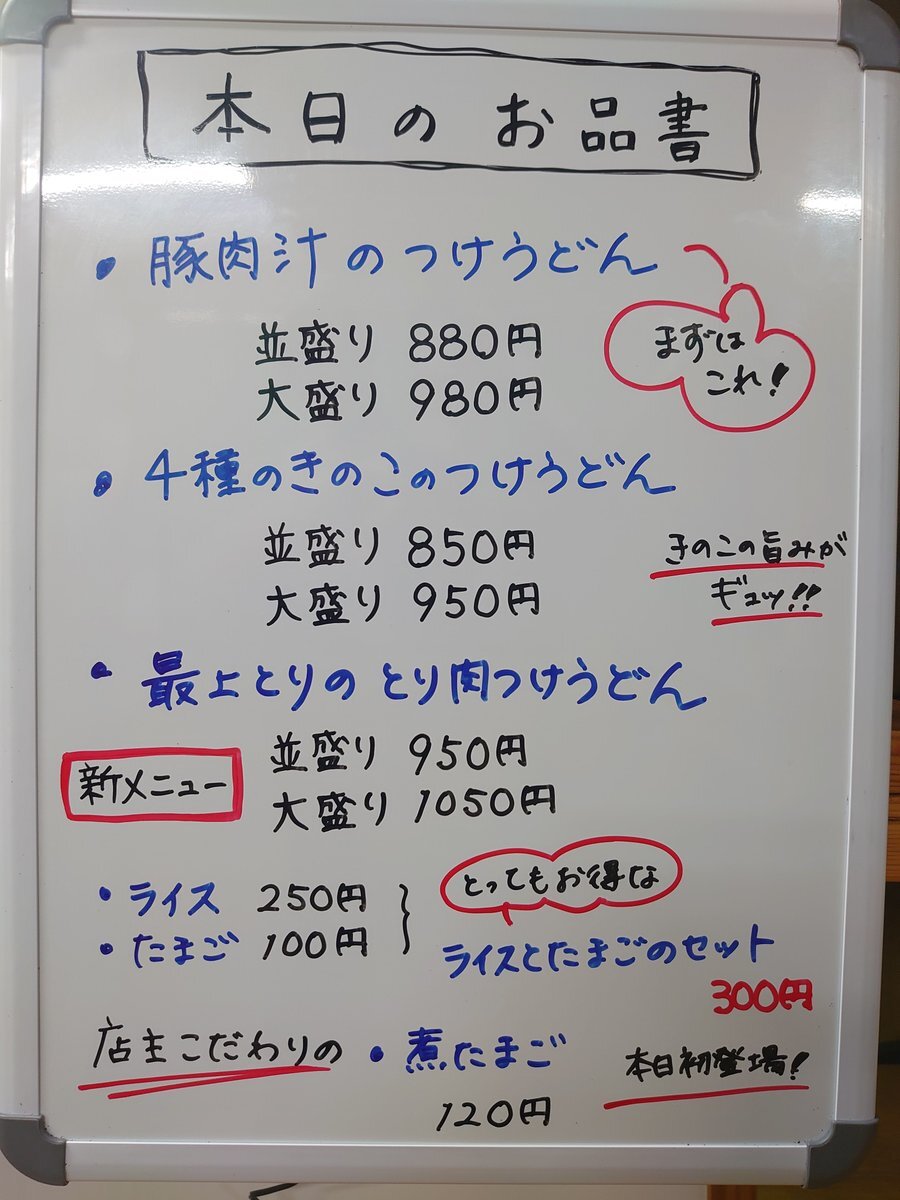 本日のお品書
・豚肉汁のつけうどん
並盛り 880円
大盛り 980円
まずは
これ!
・4種のきのこのつけうどん
並盛り 850円
大盛り 950円
きのこの旨みが
ギュッ!!
・最上とりのとり肉つけうどん
新メニュー
並盛り 950円
大盛り 1050円
・ライス 250円
・たまご 100円
とってもお得な
ライスとたまごのセット
300円
店主こだわりの ・煮たまご
120円
本日初登場!